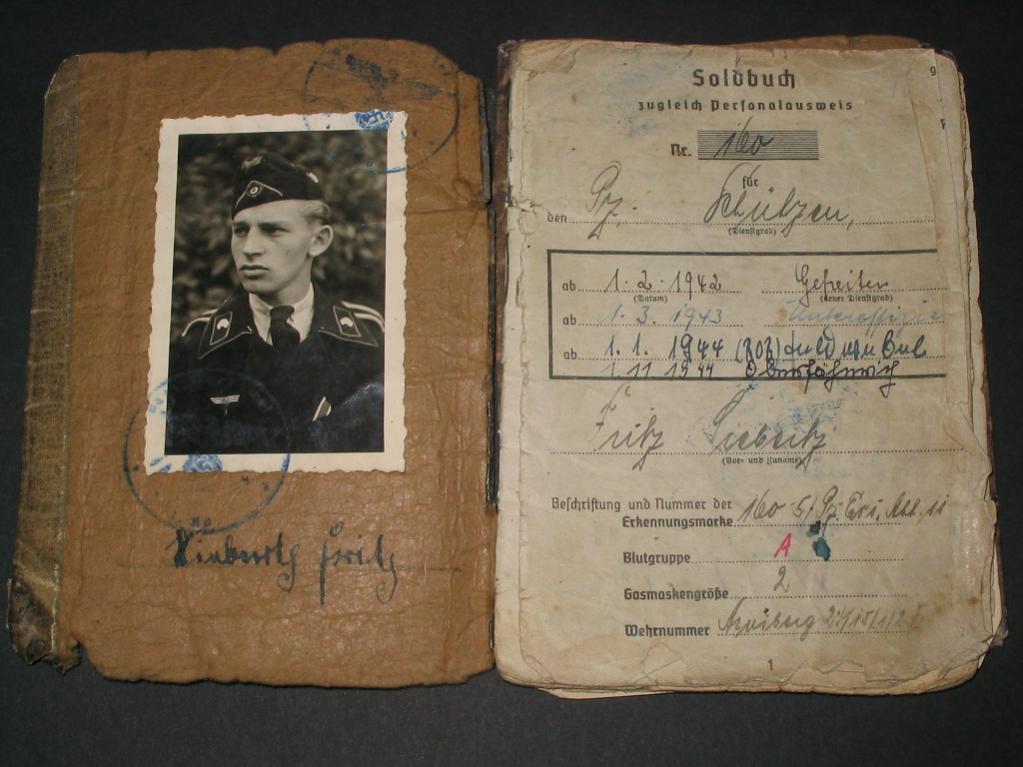 Soldbuch
zugleich Personalausweis
Nr. 160
für
den Pz. Schützen,
(Dienstgrad)
ab 1. 2. 1942 Gefreiter
(Datum) (neuer Dienstgrad)
ab 1. 3. 1943 Unteroffizier
ab 1. 1. 1944 (ROB)
1. 11 1944
Fritz
(Vor- und Zuname)
Beschriftung und Nummer der
Erkennungsmarke 160
Blutgruppe A
Gasmaskengröße 2
Wehrnummer
1
Fritz